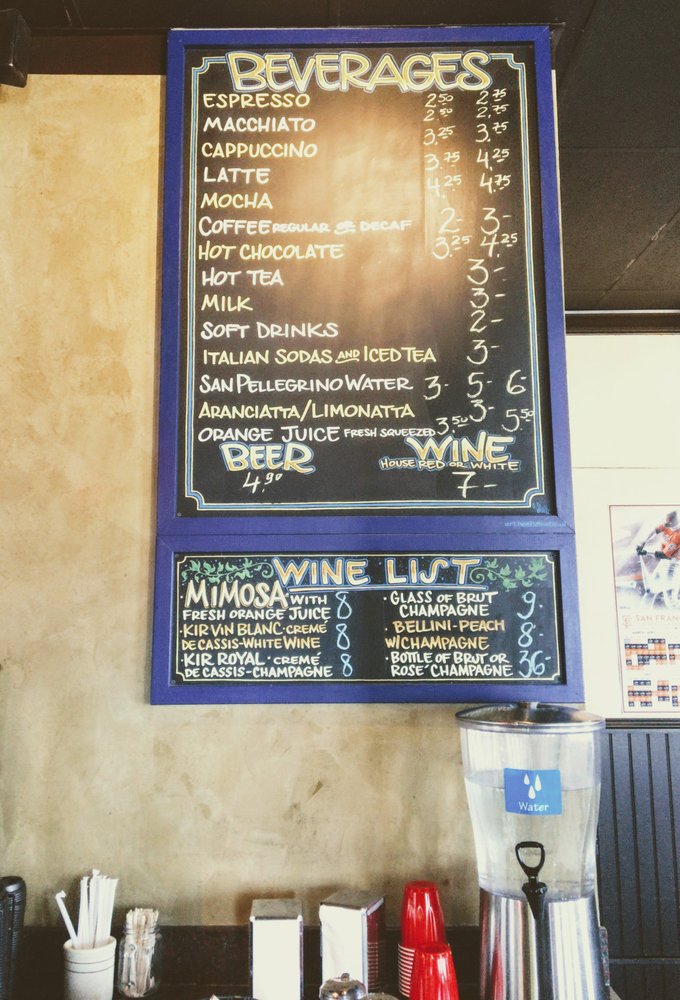 BEVERAGES
ESPRESSO 2.50 2.75
MACCHIATO 2.50 2.75
CAPPUCCINO 3.25 3.75
LATTE 3.75 4.25
MOCHA 4.25 4.75
COFFEE REGULAR OR DECAF 2- 3-
HOT CHOCOLATE 3.25 4.25
HOT TEA 3-
MILK 3-
SOFT DRINKS 2-
ITALIAN SODAS AND ICED TEA 3-
SAN PELLEGRINO WATER 3- 5- 6-
ARANCIATTA/LIMONATTA 3-
ORANGE JUICE FRESH SQUEEZED 3.50 5.50
BEER
4.90
WINE
HOUSE RED OR WHITE
7-
WINE LIST
MIMOSA WITH
FRESH ORANGE JUICE 8
·KIR VIN BLANC·CREMÉ
DE CASSIS-WHITE WINE 8
KIR ROYAL·CREMÉ
DE CASSIS-CHAMPAGNE 8
·GLASS OF BRUT
CHAMPAGNE 9-
·BELLINI-PEACH
W/CHAMPAGNE 8-
·BOTTLE OF BRUT OR
ROSÉ CHAMPAGNE 36-
Water
SAN FRAN